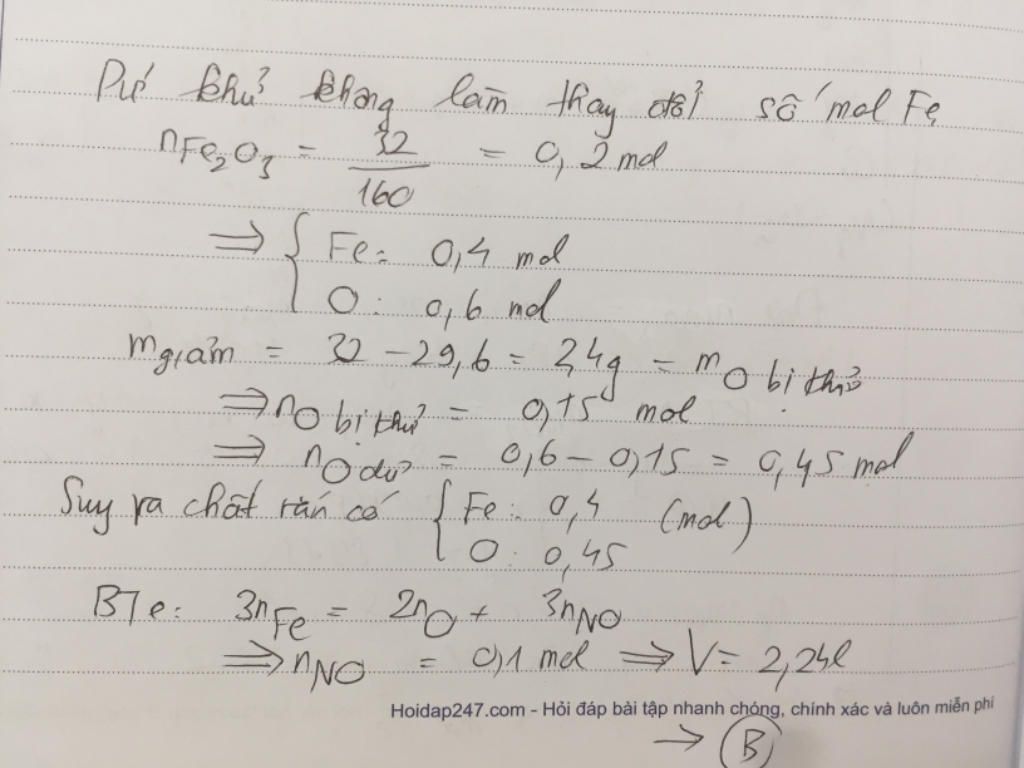 Pứ khử không làm thay đổi số mol Fe,
nFe2O3 = 32/160 = 0,2 mol
⇒ { Fe: 0,4 mol
O: 0,6 mol
mgiảm = 32 - 29,6 = 2,4g = mO bị khử
⇒ nO bị khử = 0,15 mol
⇒ nO dư = 0,6 - 0,15 = 0,45 mol
Suy ra chất rắn có { Fe: 0,4 (mol)
O: 0,45
BTe: 3nFe = 2nO + 3nNO
⇒ nNO = 0,1 mol ⇒ V = 2,24l
Hoidap247.com - Hỏi đáp bài tập nhanh chóng, chính xác và luôn miễn phí
→ B